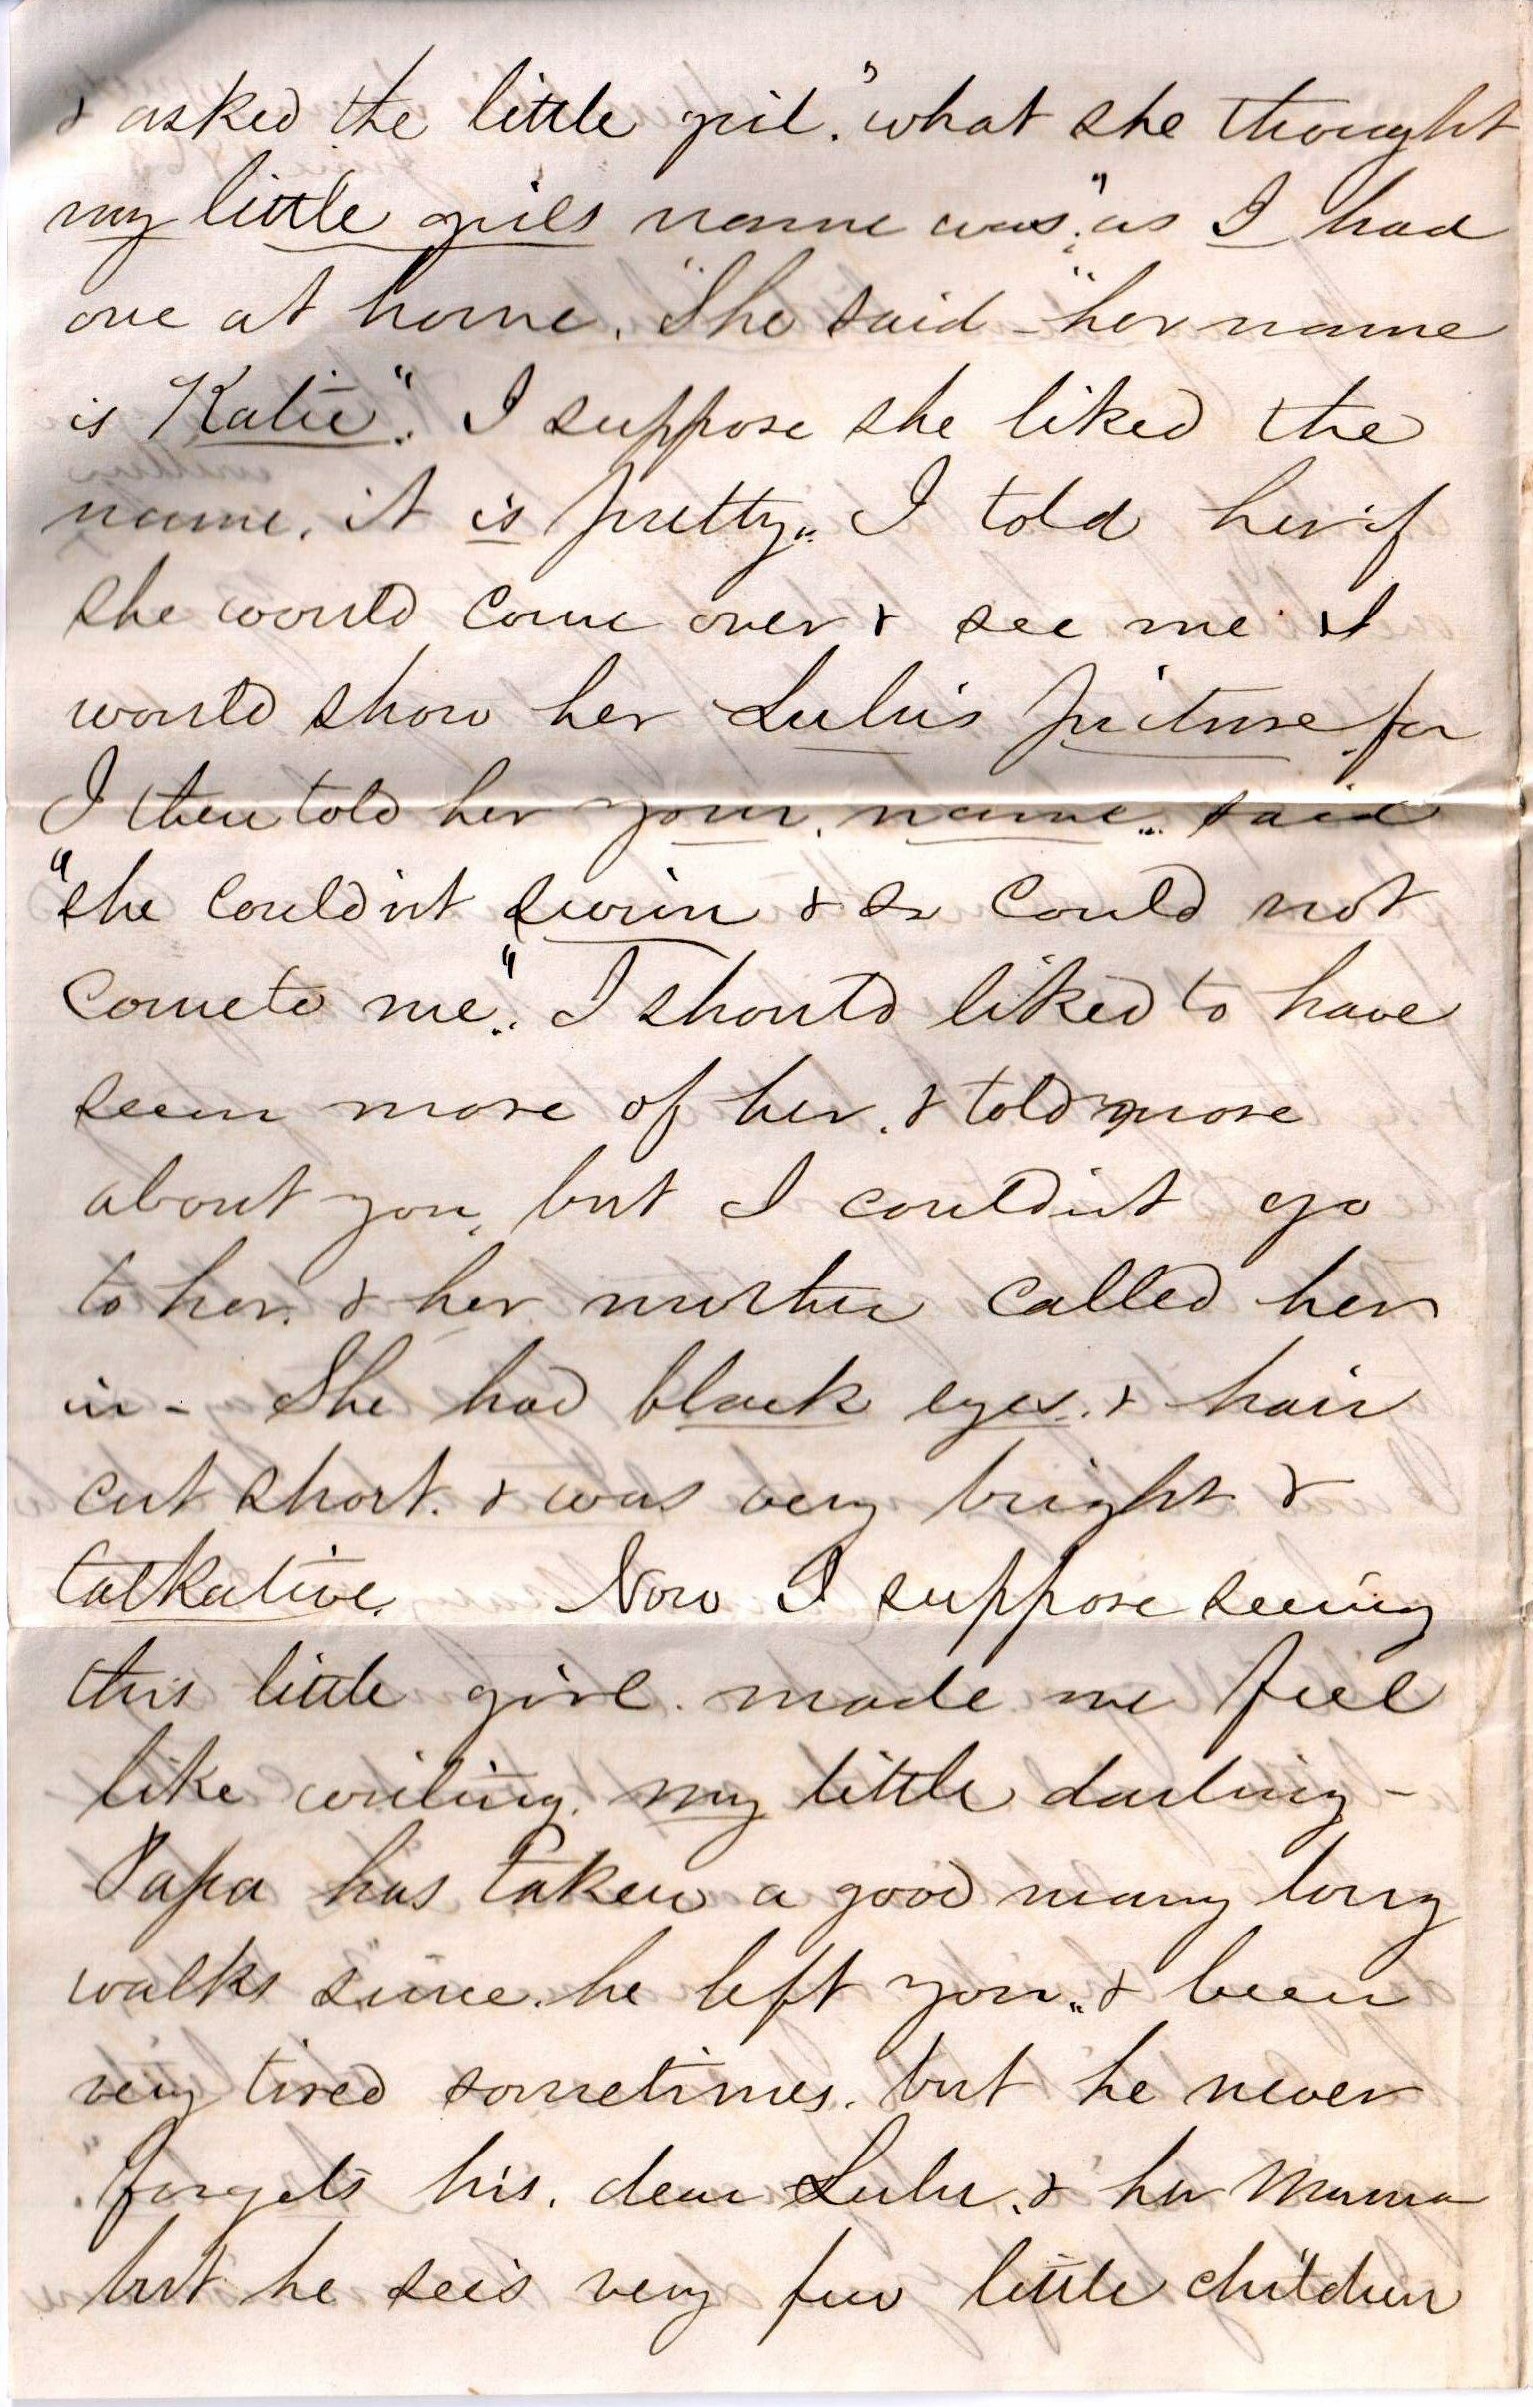 & asked the little girl, "what she thought
my little girls name was", as I had
one at home. She said - "her name
is Katie". I suppose she liked the
name, it is pretty. I told her if
she would come over & see me I
would show her Lulu's picture for
I then told her your name. said
"she could'nt swim & so could not
come to me". I should liked to have
seen more of her. & told more
about you, but I could'nt go
to her. & her mother called her
in - She had black eyes. & hair
cut short. & was very bright &
talkative. Now I suppose seeing
this little girl. made me feel
like writing. my little darling -
Papa has taken a good many long
walks since. he left you. & been
very tired sometimes. but he never
forgets his. dear Lulu. & her Mama
but he see's very few little children